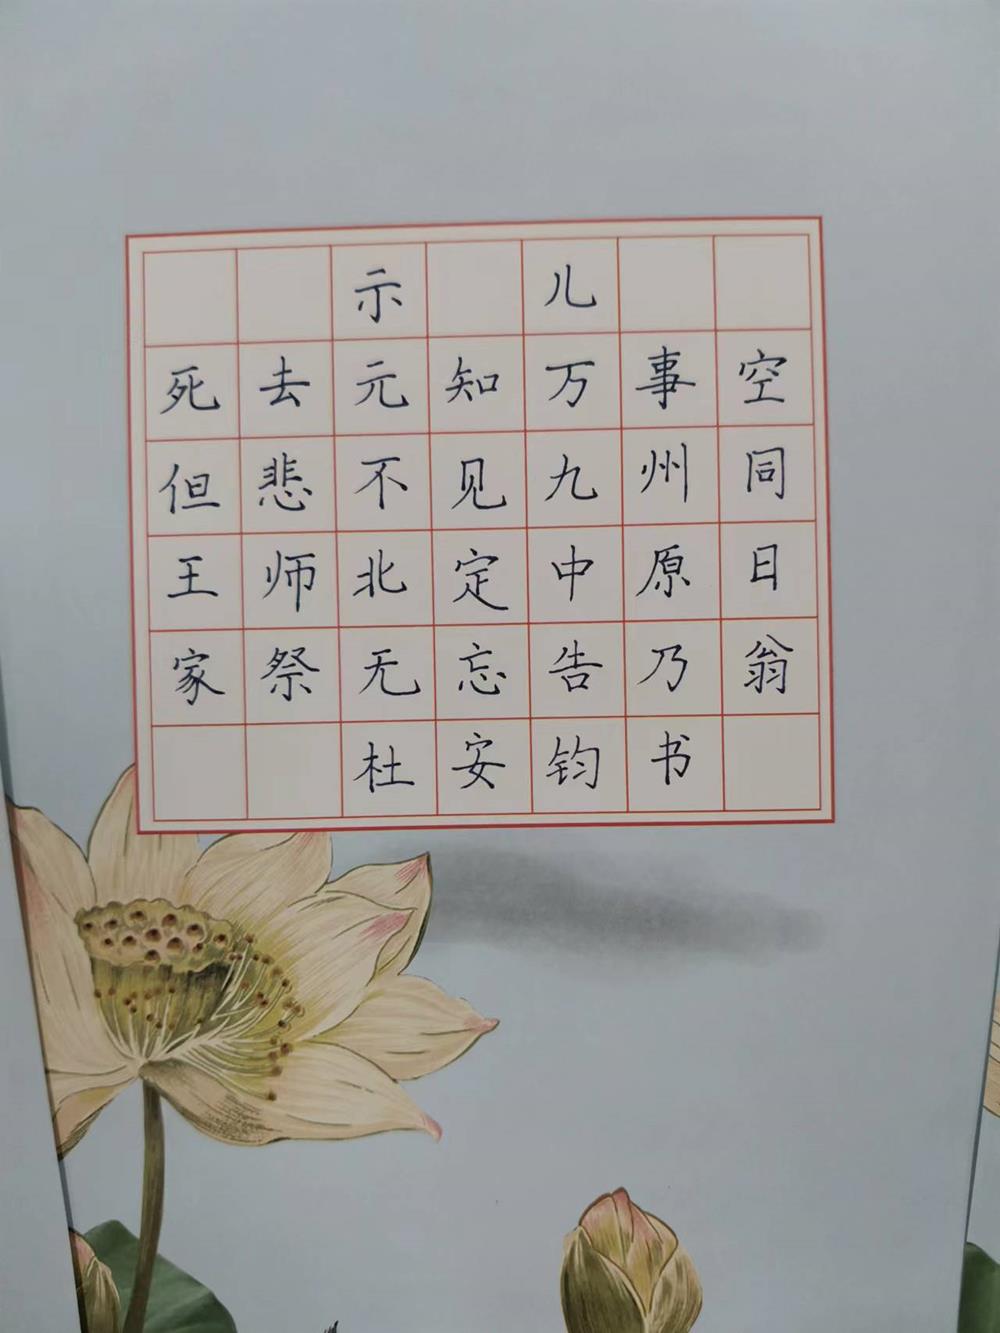 示儿
死去元知万事空
但悲不见九州同
王师北定中原日
家祭无忘告乃翁
杜安钧书